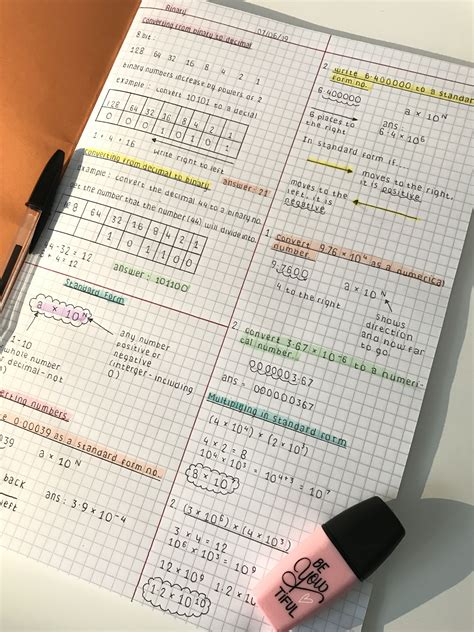 Binary
07/06/19
converting from binary to decimal
8 bit:
128 64 32 16 8 4 2 1
binary numbers increase by powers of 2
example: convert 10101 to a decimal
128 64 32 16 8 4 2 1
0 0 0 1 0 1 0 1
1 + 4 + 16
write right to left
answer: 21
converting from decimal to binary
Example: convert the decimal 44 to a binary no.
get the number that the number (44) will divide into.
64 32 16 8 4 2 1
0 1 0 1 1 0 0
44 - 32 = 12
8 + 4 = 12
answer: 101100
Standard Form
a × 10ᴺ
1 - 10
whole number
decimal - not
any number
positive or
negative
(interger - including
0)
converting numbers
0.00039 as a standard form no.
a × 10ᴺ
back
ans: 3.9 × 10⁻⁴
2. write 6.400000 to a standard
form no.
6.400000
a × 10ᴺ
6 places to
the right
ans:
6.4 × 10⁶
In standard form if...
moves to the right,
it is positive
moves to the
left, it is
negative
1. convert 9.76 × 10⁴ as a numerical
number
9.7600
a × 10ᴺ
4 to the right
shows
direction
and how far
to go.
2. convert 3.67 × 10⁻⁶ to a numeri-
cal number.
000003.67
ans = 0.00000367
Multiplying in standard form
(4 × 10⁴) × (2 × 10³)
4 × 2 = 8
10⁴ × 10³ = 10⁴⁺³ = 10⁷
8 × 10⁷
2. (3 × 10⁶) × (4 × 10³)
3 × 4 = 12
10⁶ × 10³ = 10⁹
12 × 10⁹
1.2 × 10¹⁰
BE
YOU
TIFUL